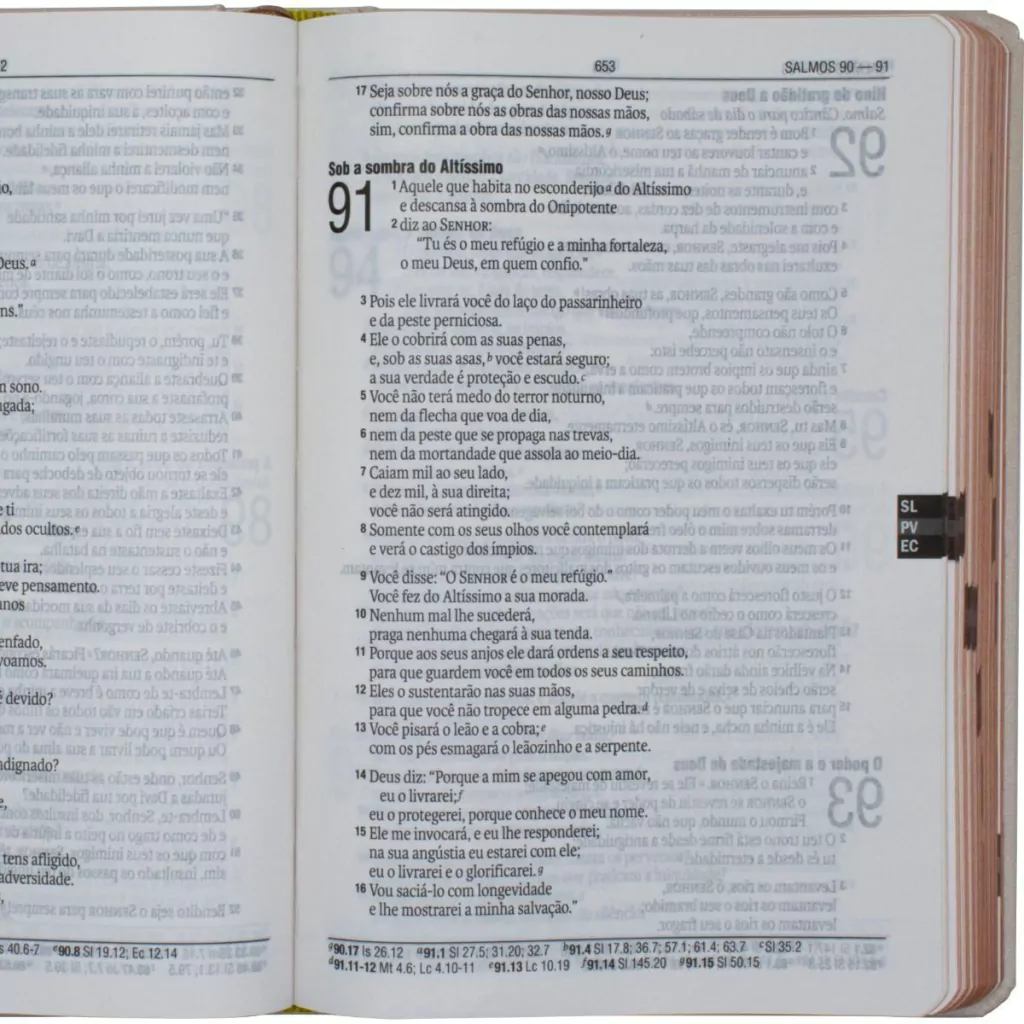 2
o,
Deus.a
ns."
m sono.
ngada;
e ti
dos ocultos.e
tua ira;
eve pensamento.
anos
enfado,
voamos.
é devido?
ndignado?
e,
tens afligido,
adversidade.
s 40.6-7 e90.8 Sl 19.12; Ec 12.14
653 SALMOS 90 — 91
17 Seja sobre nós a graça do Senhor, nosso Deus;
confirma sobre nós as obras das nossas mãos,
sim, confirma a obra das nossas mãos.g
Sob a sombra do Altíssimo
91 1 Aquele que habita no esconderijo a do Altíssimo
e descansa à sombra do Onipotente
2 diz ao SENHOR:
"Tu és o meu refúgio e a minha fortaleza,
o meu Deus, em quem confio."
3 Pois ele livrará você do laço do passarinheiro
e da peste perniciosa.
4 Ele o cobrirá com as suas penas,
e, sob as suas asas,b você estará seguro;
a sua verdade é proteção e escudo.c
5 Você não terá medo do terror noturno,
nem da flecha que voa de dia,
6 nem da peste que se propaga nas trevas,
nem da mortandade que assola ao meio-dia.
7 Caiam mil ao seu lado,
e dez mil, à sua direita;
você não será atingido.
8 Somente com os seus olhos você contemplará
e verá o castigo dos ímpios.
9 Você disse: "O SENHOR é o meu refúgio."
Você fez do Altíssimo a sua morada.
10 Nenhum mal lhe sucederá,
praga nenhuma chegará à sua tenda.
11 Porque aos seus anjos ele dará ordens a seu respeito,
para que guardem você em todos os seus caminhos.
12 Eles o sustentarão nas suas mãos,
para que você não tropece em alguma pedra.d
13 Você pisará o leão e a cobra;e
com os pés esmagará o leãozinho e a serpente.
14 Deus diz: "Porque a mim se apegou com amor,
eu o livrarei;f
eu o protegerei, porque conhece o meu nome.
15 Ele me invocará, e eu lhe responderei;
na sua angústia eu estarei com ele;
eu o livrarei e o glorificarei.g
16 Vou saciá-lo com longevidade
e lhe mostrarei a minha salvação."
g90.17 Is 26.12 a91.1 Sl 27.5; 31.20; 32.7 b91.4 Sl 17.8; 36.7; 57.1; 61.4; 63.7 cSl 35.2
d91.11-12 Mt 4.6; Lc 4.10-11 e91.13 Lc 10.19 f91.14 Sl 145.20 g91.15 Sl 50.15
SL
PV
EC